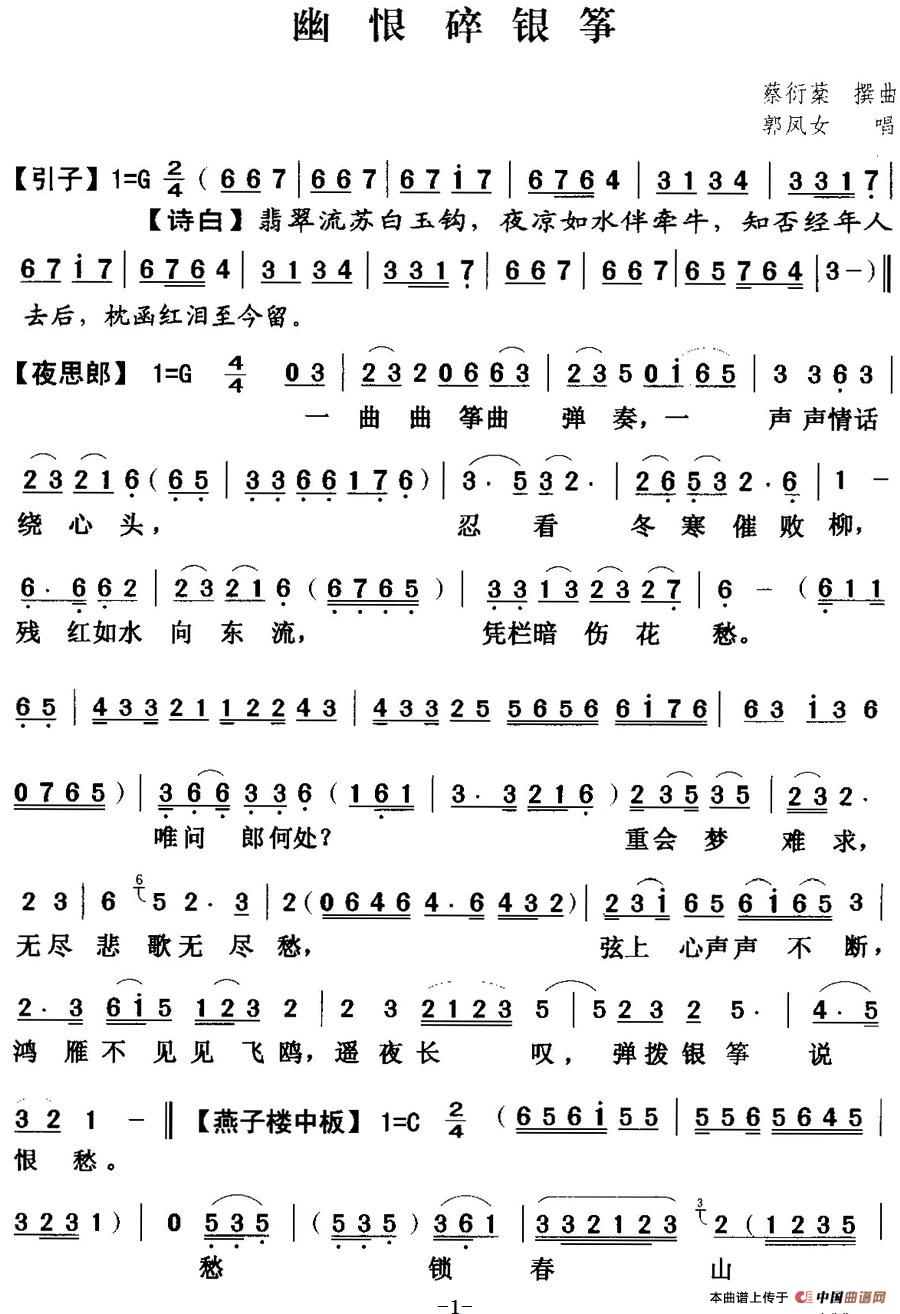 幽恨碎银筝
蔡衍棻 撰曲
郭凤女 唱
【引子】1=G 2/4 (667|667|67i7|6764|3134|3317|
【诗白】翡翠流苏白玉钩，夜凉如水伴牵牛，知否经年人
67i7|6764|3134|3317|667|667|65764|3-)‖
去后，枕函红泪至今留。
【夜思郎】 1=G 4/4 03|2320663|2350i65|3363|
一曲曲筝曲 弹奏，一 声声情话
23216(65|3366176)|3·532·|26532·6|1-
绕心头， 忍看 冬寒催败柳，
6·662|23216(6765)|33132327|6-(611
残红如水向东流， 凭栏暗伤花愁。
65|43321122243|4332556566i76|63i36
0765)|366336(161|3·3216)23535|232·
唯问 郎何处？ 重会梦 难求，
23|6 6 52·3|2(06464·6432)|23i656i653|
无尽悲歌无尽愁， 弦上 心声声不断，
2·36i51232|2321235|52325·|4·5
鸿雁不见见飞鸥，遥夜长 叹，弹拨银筝 说
321-‖【燕子楼中板】1=C 2/4 (656i55|5565645|
恨愁。
3231)|0535|(535)361|3321223|3 2(1235|
愁 锁 春 山
-1-
本曲谱上传于 中国曲谱网